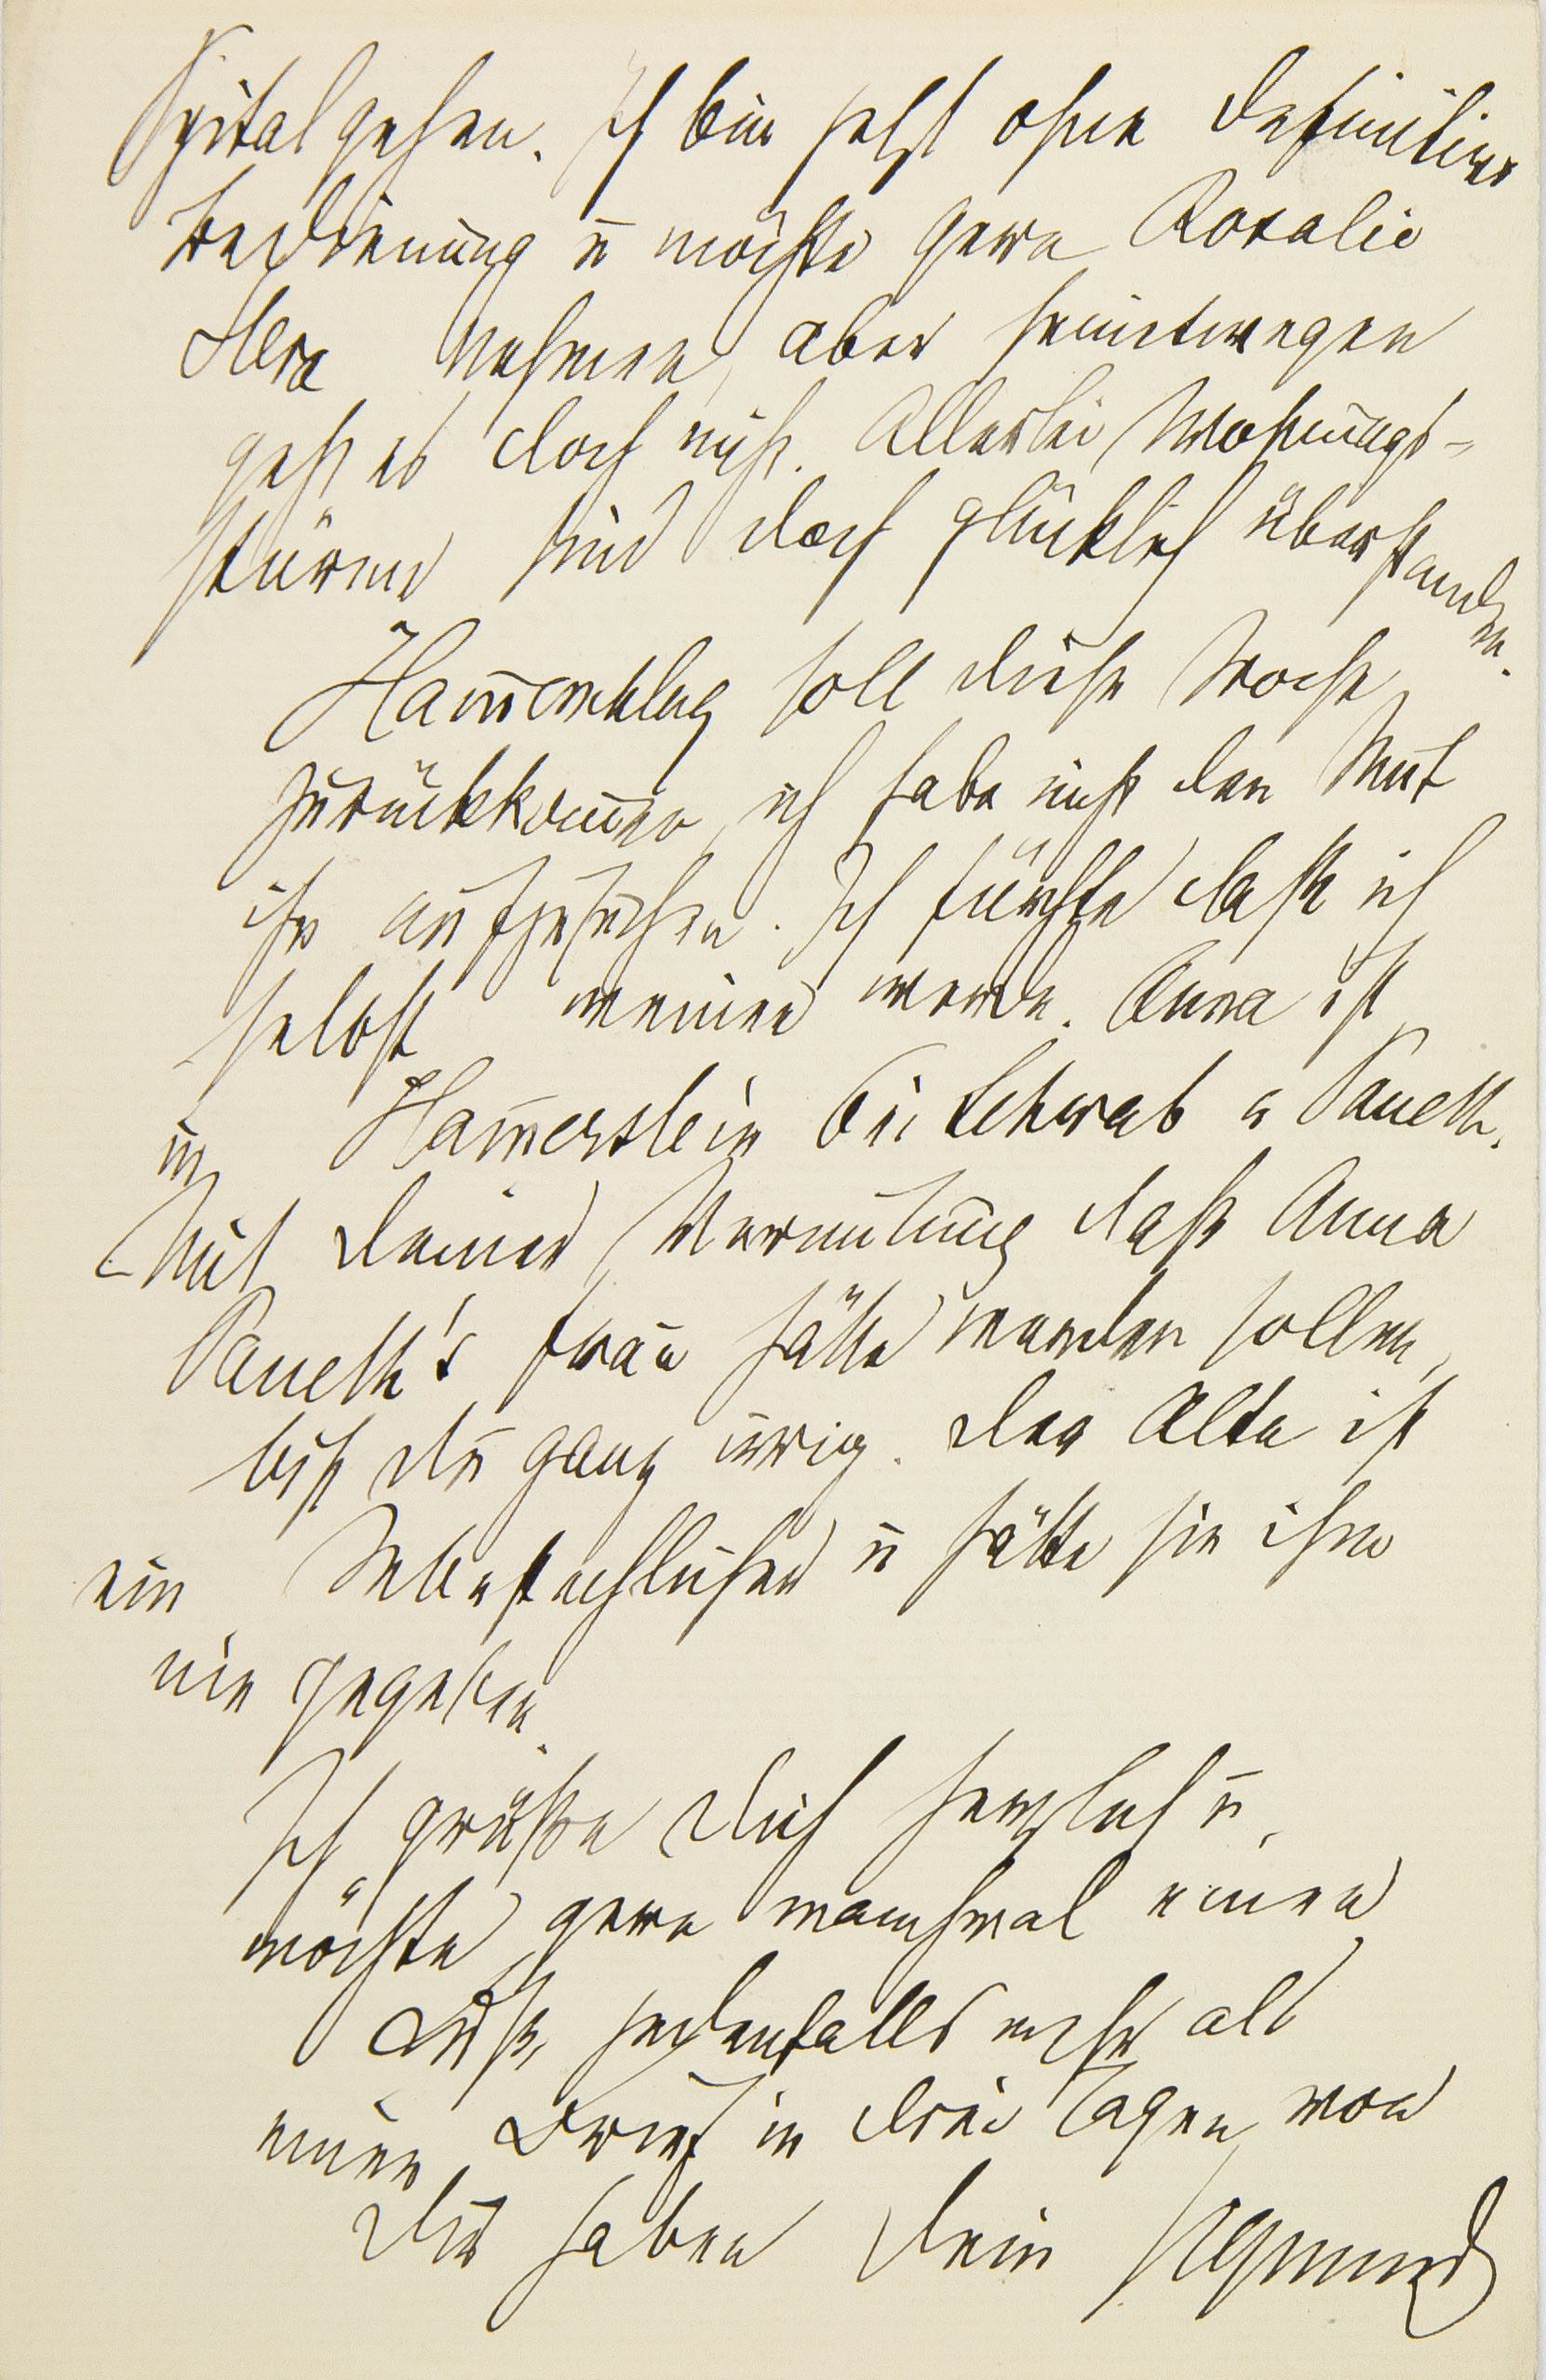 Spital gehen. Ich bin jetzt ohne definitive
Bedienung u möchte gern Rosalie
nehmen, aber seinetwegen
geht es doch nicht. Allerlei Wohnungs-
stürme sind doch glücklich überstanden.
Ham̄erschlag soll diese Woche
zurückkom̄en, ich habe nicht den Mut
ihn aufzusuchen. Ich fürchte daß ich
selbst weinen werde. Anna ist
in Ham̄erstein bei Schwab u Paneth.
Mit Deiner Vermutung daß Anna
Paneth's Frau hätte werden sollen,
bist du ganz irrig. Der Alte ist
ein u hätte sie ihm
nie gegeben.
Ich grüße Dich herzlich u
möchte gern manchmal einen
Kuß, jedenfalls mehr als
einen Brief in drei Tagen von
Dir haben Dein Sigmund